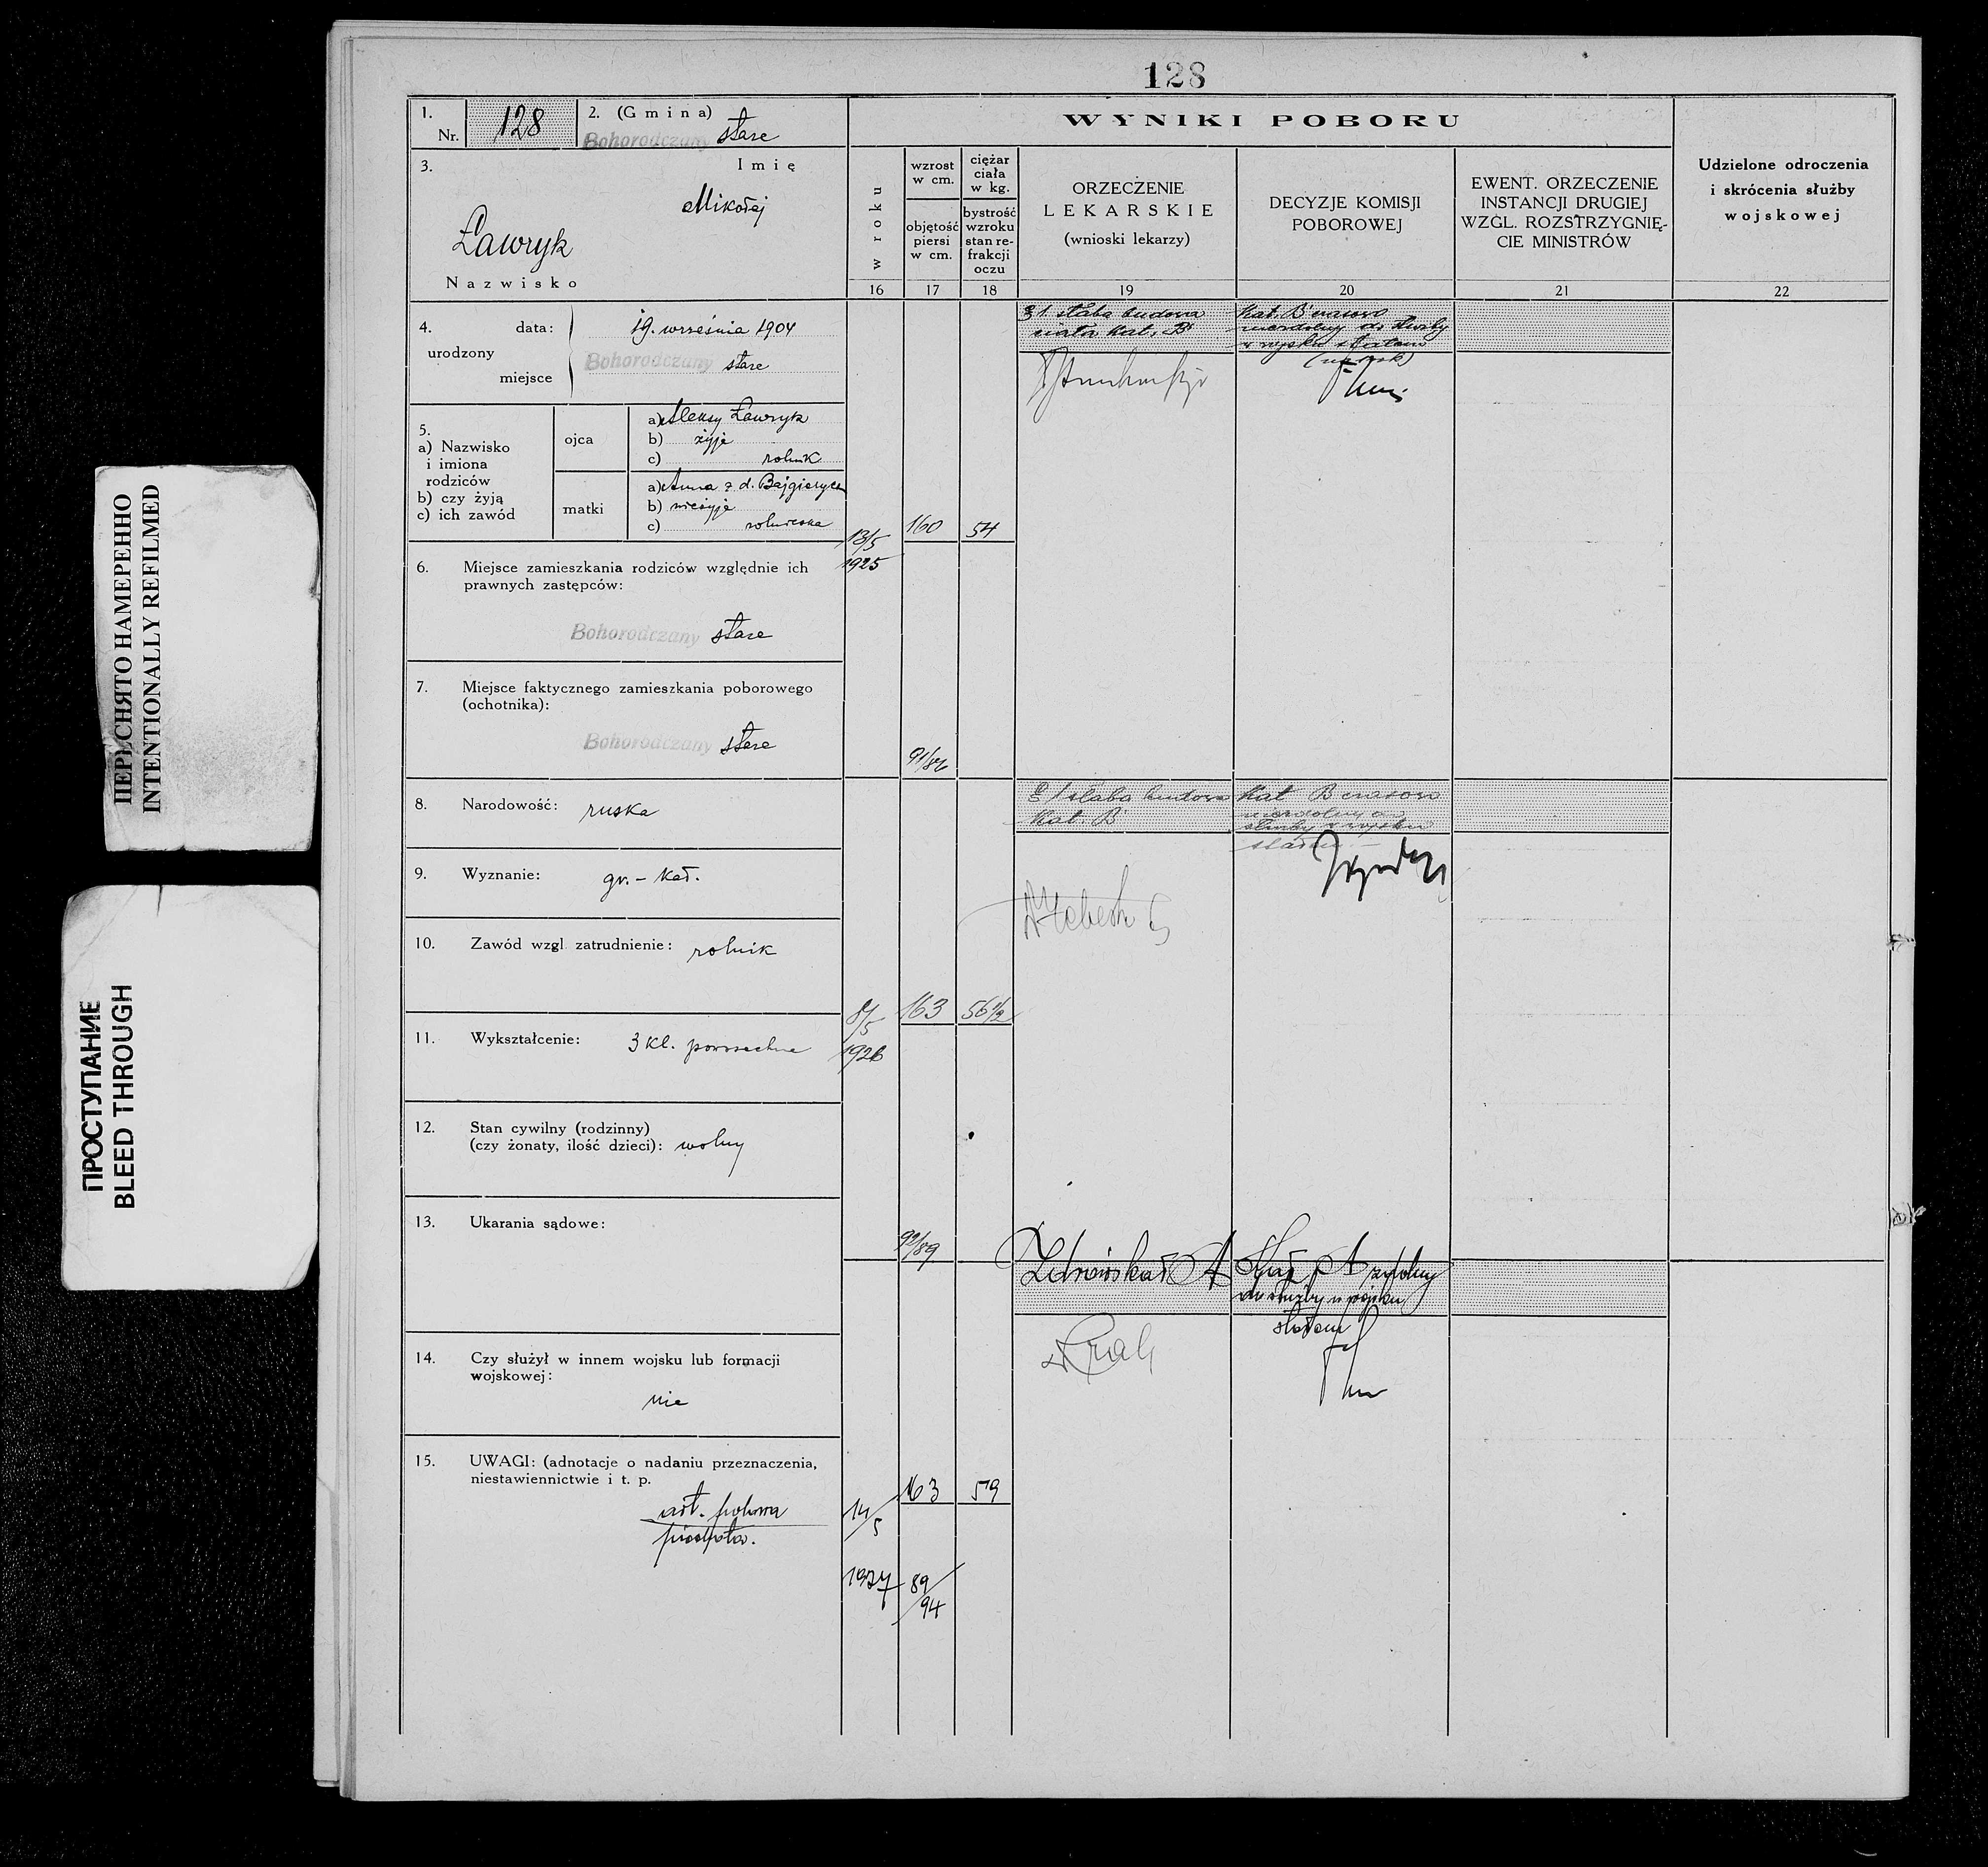 128
1.
Nr. 128
2. (Gmina)
Bohorodczany stare
3.
Imię
Mikołej
Ławryk
Nazwisko
4.
urodzony
data: 19. września 1904
miejsce Bohorodczany stare
5.
a) Nazwisko
i imiona
rodziców
b) czy żyją
c) ich zawód
ojca
a) Aleksy Ławryk
b) żyje
c) rolnik
matki
a) Anna z d.
b) nieżyje
c) rolniczka
6. Miejsce zamieszkania rodziców względnie ich
prawnych zastępców:
Bohorodczany stare
7. Miejsce faktycznego zamieszkania poborowego
(ochotnika):
Bohorodczany stare
8. Narodowość: ruska
9. Wyznanie: gr. - kat.
10. Zawód wzgl. zatrudnienie: rolnik
11. Wykształcenie: 3 kl. powszechne
12. Stan cywilny (rodzinny)
(czy żonaty, ilość dzieci): wolny
13. Ukarania sądowe:
14. Czy służył w innem wojsku lub formacji
wojskowej:
nie
15. UWAGI: (adnotacje o nadaniu przeznaczenia,
niestawiennictwie i t. p.
art. polowa
piechota.
WYNIKI POBORU
w roku
16
wzrost
w cm.
objętość
piersi
w cm.
17
ciężar
ciała
w kg.
bystrość
wzroku
stan re-
frakcji
oczu
18
ORZECZENIE
LEKARSKIE
(wnioski lekarzy)
19
DECYZJE KOMISJI
POBOROWEJ
20
EWENT. ORZECZENIE
INSTANCJI DRUGIEJ
WZGL. ROZSTRZYGNIĘ-
CIE MINISTRÓW
21
Udzielone odroczenia
i skrócenia służby
wojskowej
22
słaba budowa
ciała kat. B
Kat. B czasowo
niezdolny do służby
w wojsku stałem
13/5
1925
160
54
91/86
słaba budowa
Kat. B
Kat B czasowo
niezdolny do
służby w wojsku
stałem
8/5
1926
163
56 1/2
92/89
Kat A
Kat A zdolny
do służby w wojsku
stałem
14/5
1927
163
59
89/94
ПЕРЕСНЯТО НАМЕРЕННО
INTENTIONALLY REFILMED
ПРОСТУПАНИЕ
BLEED THROUGH